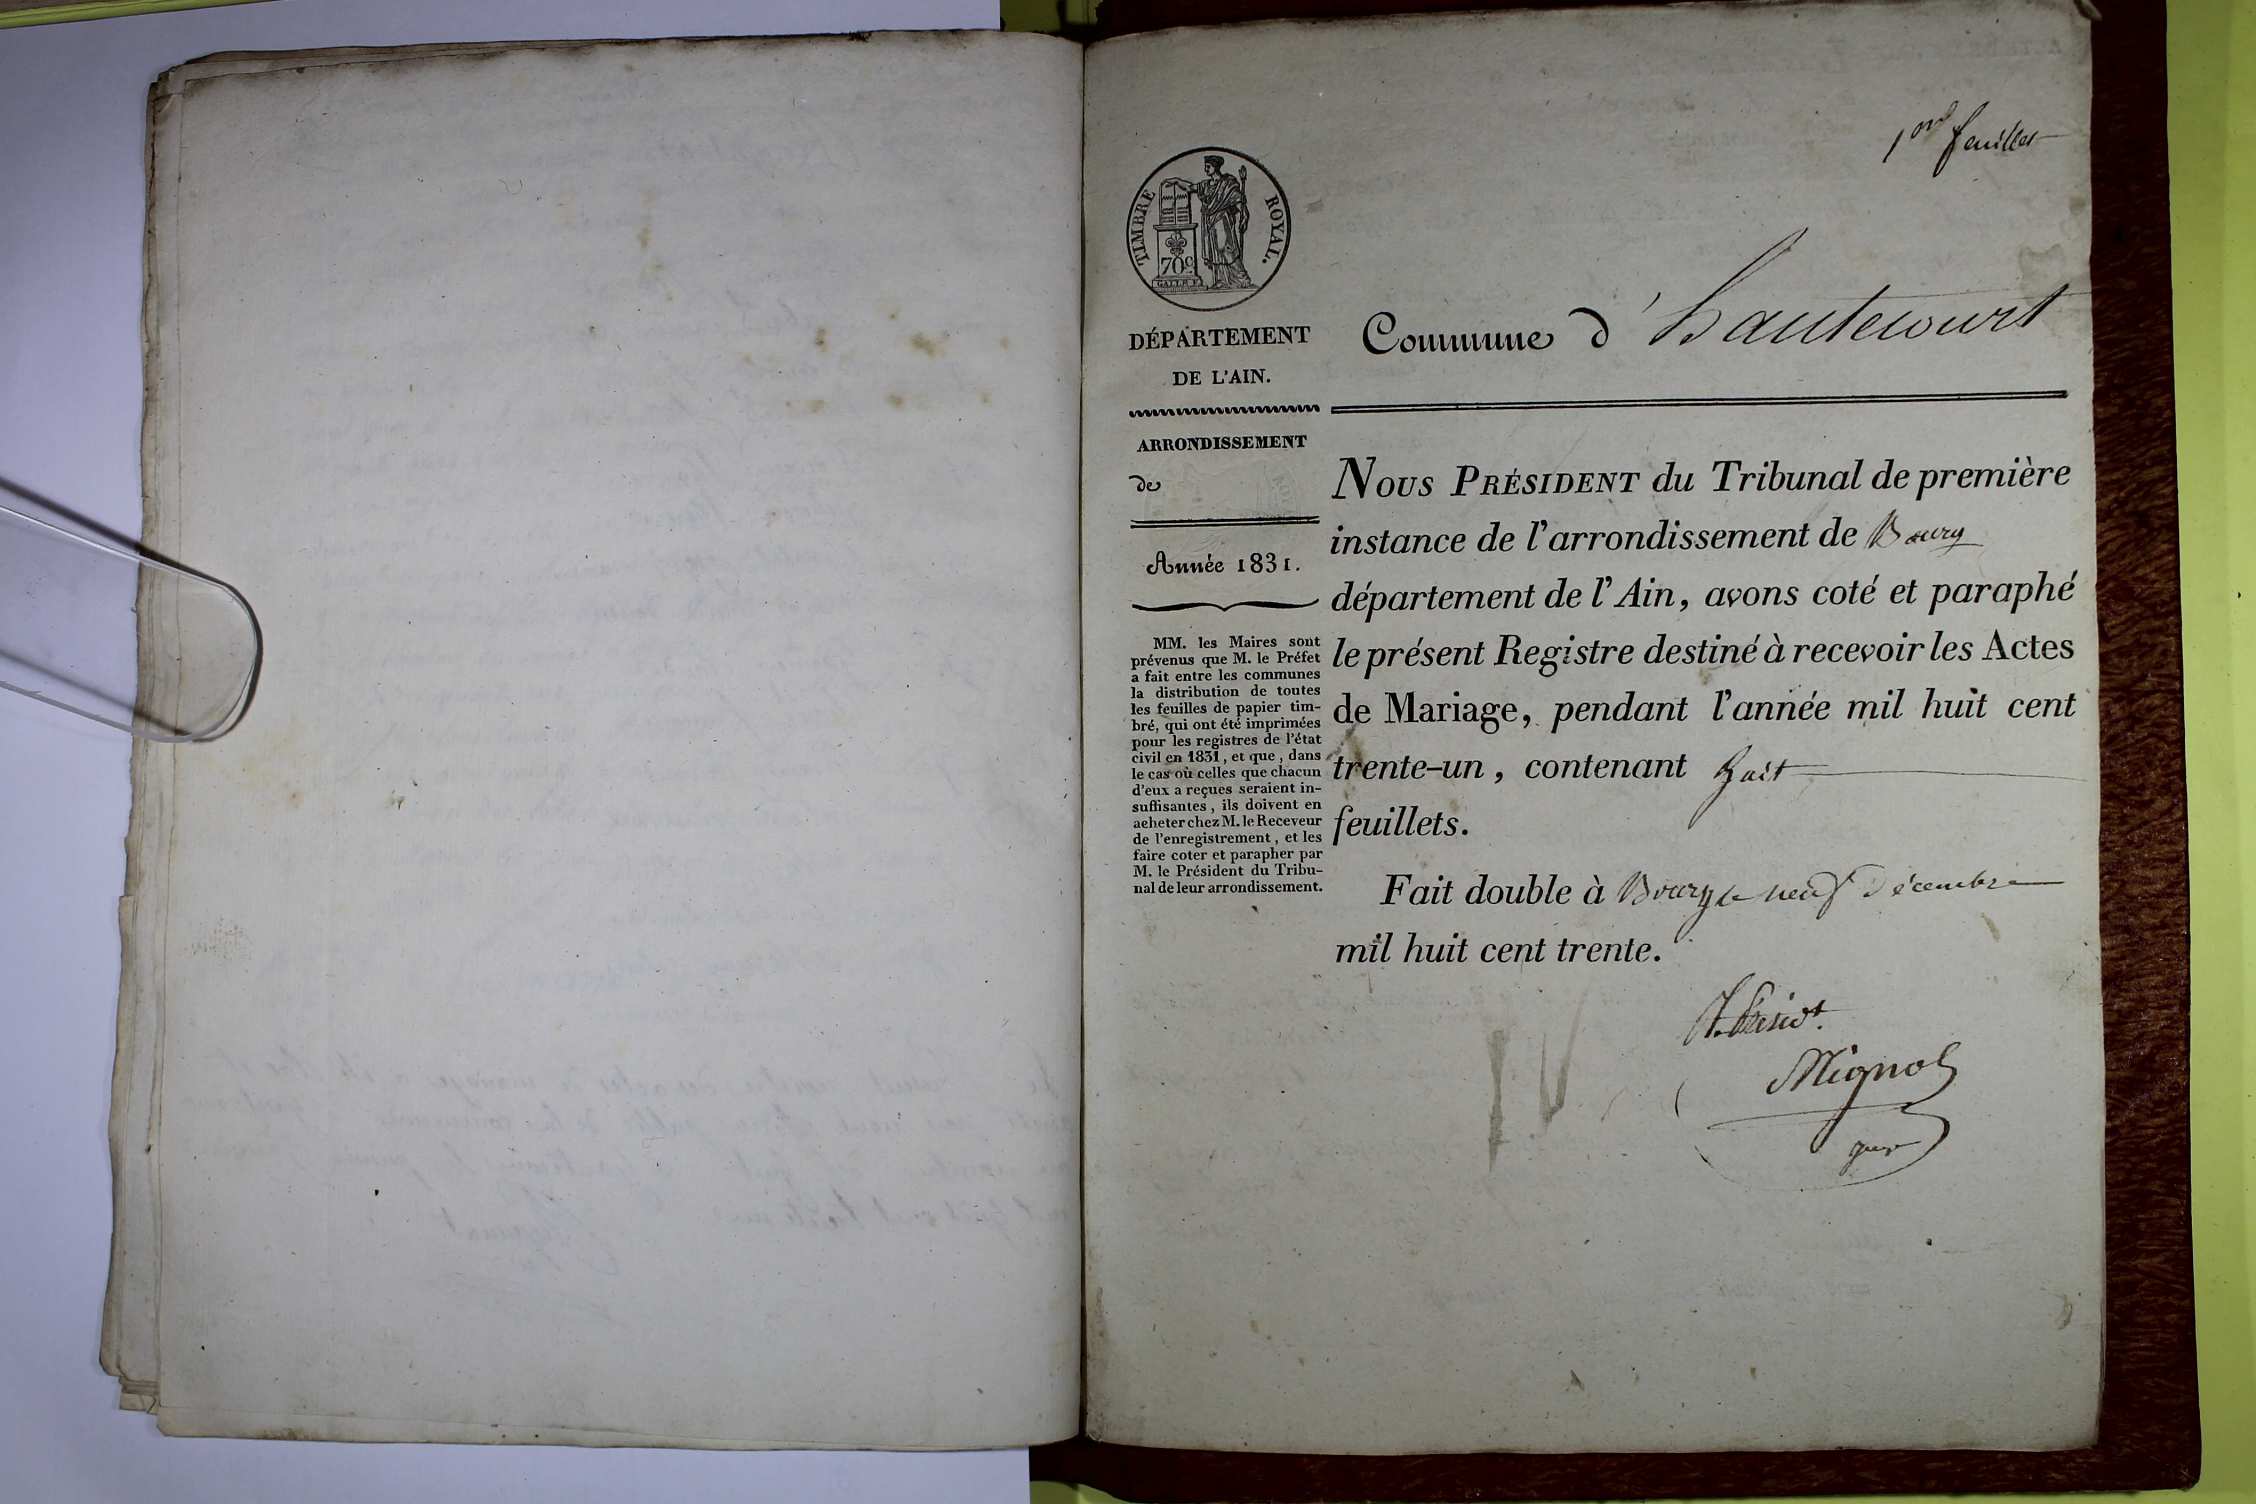 1er feuillet
TIMBRE ROYAL.
70c
GALLE F.
DÉPARTEMENT
DE L'AIN.
Commune d'hautecourt
ARRONDISSEMENT
de
Année 1831.
MM. les Maires sont
prévenus que M. le Préfet
a fait entre les communes
la distribution de toutes
les feuilles de papier tim-
bré, qui ont été imprimées
pour les registres de l'état
civil en 1831, et que, dans
le cas où celles que chacun
d'eux a reçues seraient in-
suffisantes, ils doivent en
acheter chez M. le Receveur
de l'enregistrement, et les
faire coter et parapher par
M. le Président du Tribu-
nal de leur arrondissement.
NOUS PRÉSIDENT du Tribunal de première
instance de l'arrondissement de Bourg
département de l'Ain, avons coté et paraphé
le présent Registre destiné à recevoir les Actes
de Mariage, pendant l'année mil huit cent
trente-un, contenant huit
feuillets.
Fait double à Bourg le neuf Décembre
mil huit cent trente.
Mignot